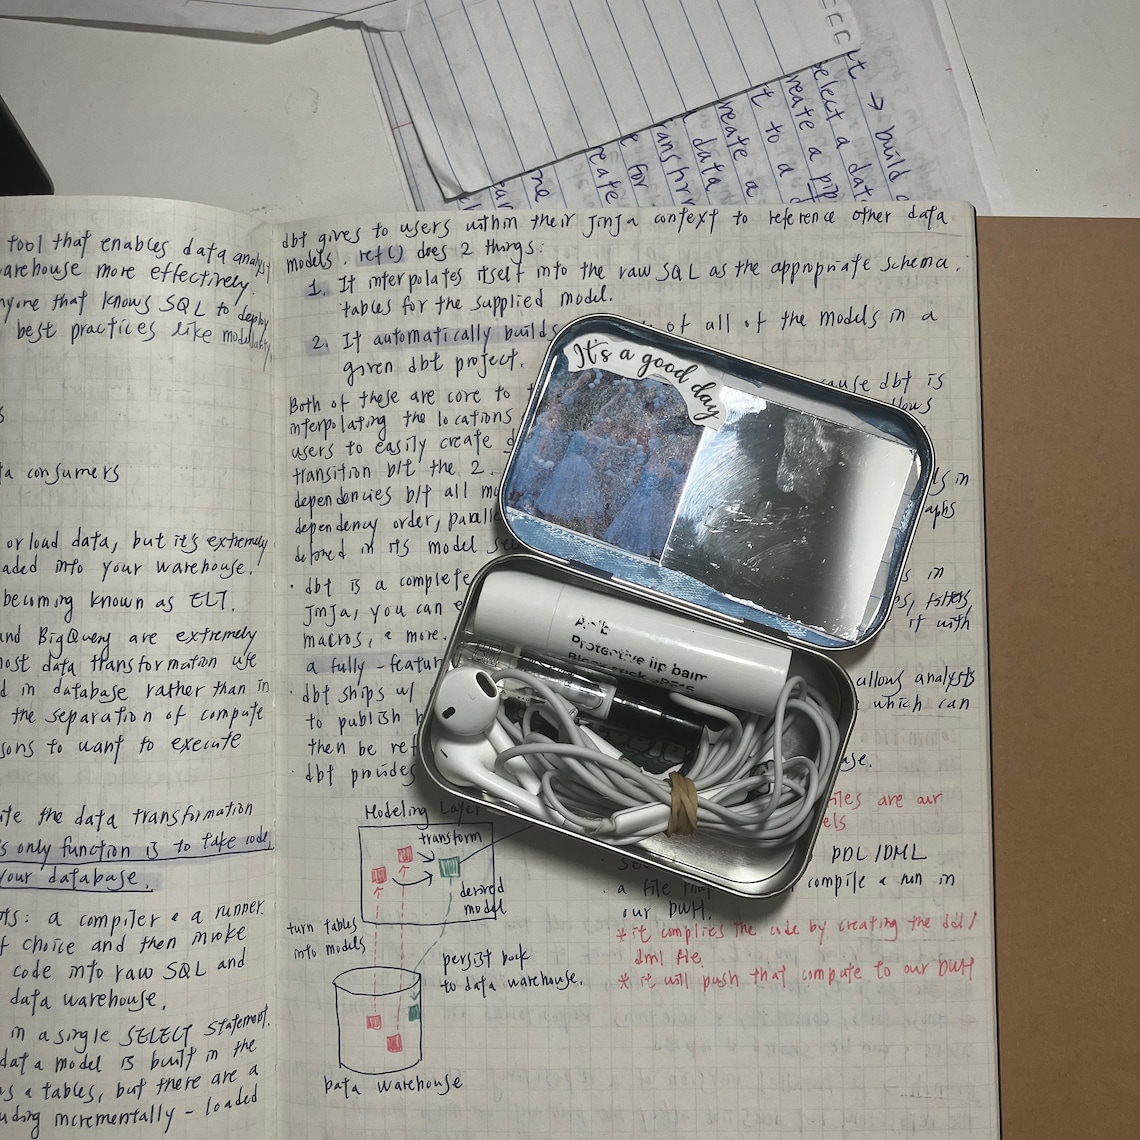 build
select a dat
create a pip
t to a
create a
data
transfor
e for
create
ne
tool that enables data analyst
warehouse more effectively.
anyone that knows SQL to deploy
best practices like modularity,
a consumers
or load data, but its extremely
aded into your warehouse.
becoming known as ELT.
and BigQuery are extremely
most data transformation use
d in database rather than in
the separation of compute
sons to want to execute
ite the data transformation
s only function is to take code,
your database.
ts: a compiler & a runner.
f choice and then invoke
code into raw SQL and
data warehouse.
in a single SELECT statement.
data model is built in the
as a tables, but there are a
uding incrementally - loaded
dbt gives to users within their Jinja context to reference other data
models. ref() does 2 things:
1. It interpolates itself into the raw SQL as the appropriate schema.
tables for the supplied model.
2. It automatically builds of all of the models in a
given dbt project.
Both of these are core to cause dbt is
interpolating the locations allows
users to easily create d
transition b/t the 2.
dependencies b/t all mo ls in
dependency order, paralle aphs
defined in its model se
· dbt is a complete s in
Jinja, you can e ps, filters,
macros, & more. it with
a fully-featur
· dbt ships w/ allows analysts
to publish which can
then be re
· dbt provides ase.
It's a good day
Protective lip balm
Modeling Layer
transform
derived
model
turn tables
into models
persist back
to data warehouse.
Data Warehouse
files are our
els
DDL/DML
a file that compile & run in
our DWH.
* it complies the code by creating the ddl/
dml file
* it will push that compute to our DWH